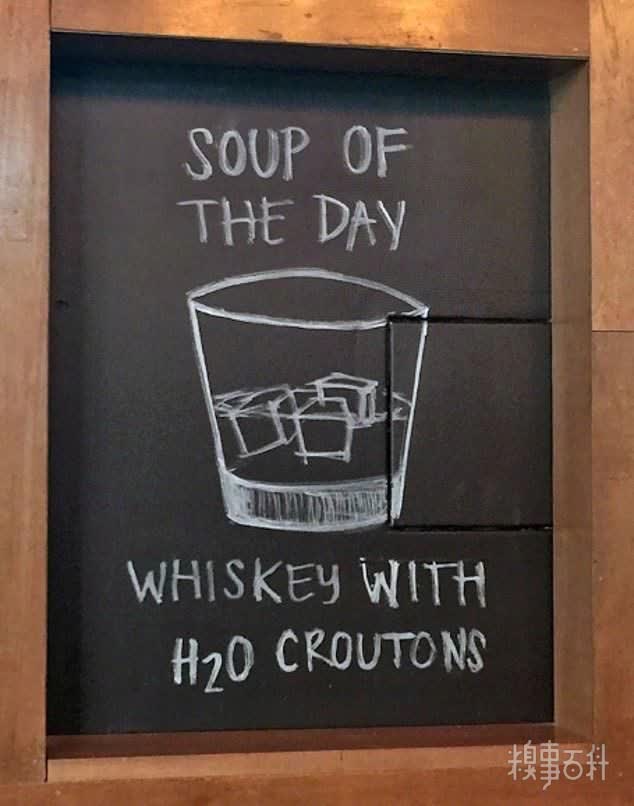 SOUP OF
THE DAY
WHISKEY WITH
H2O CROUTONS
糗事百科